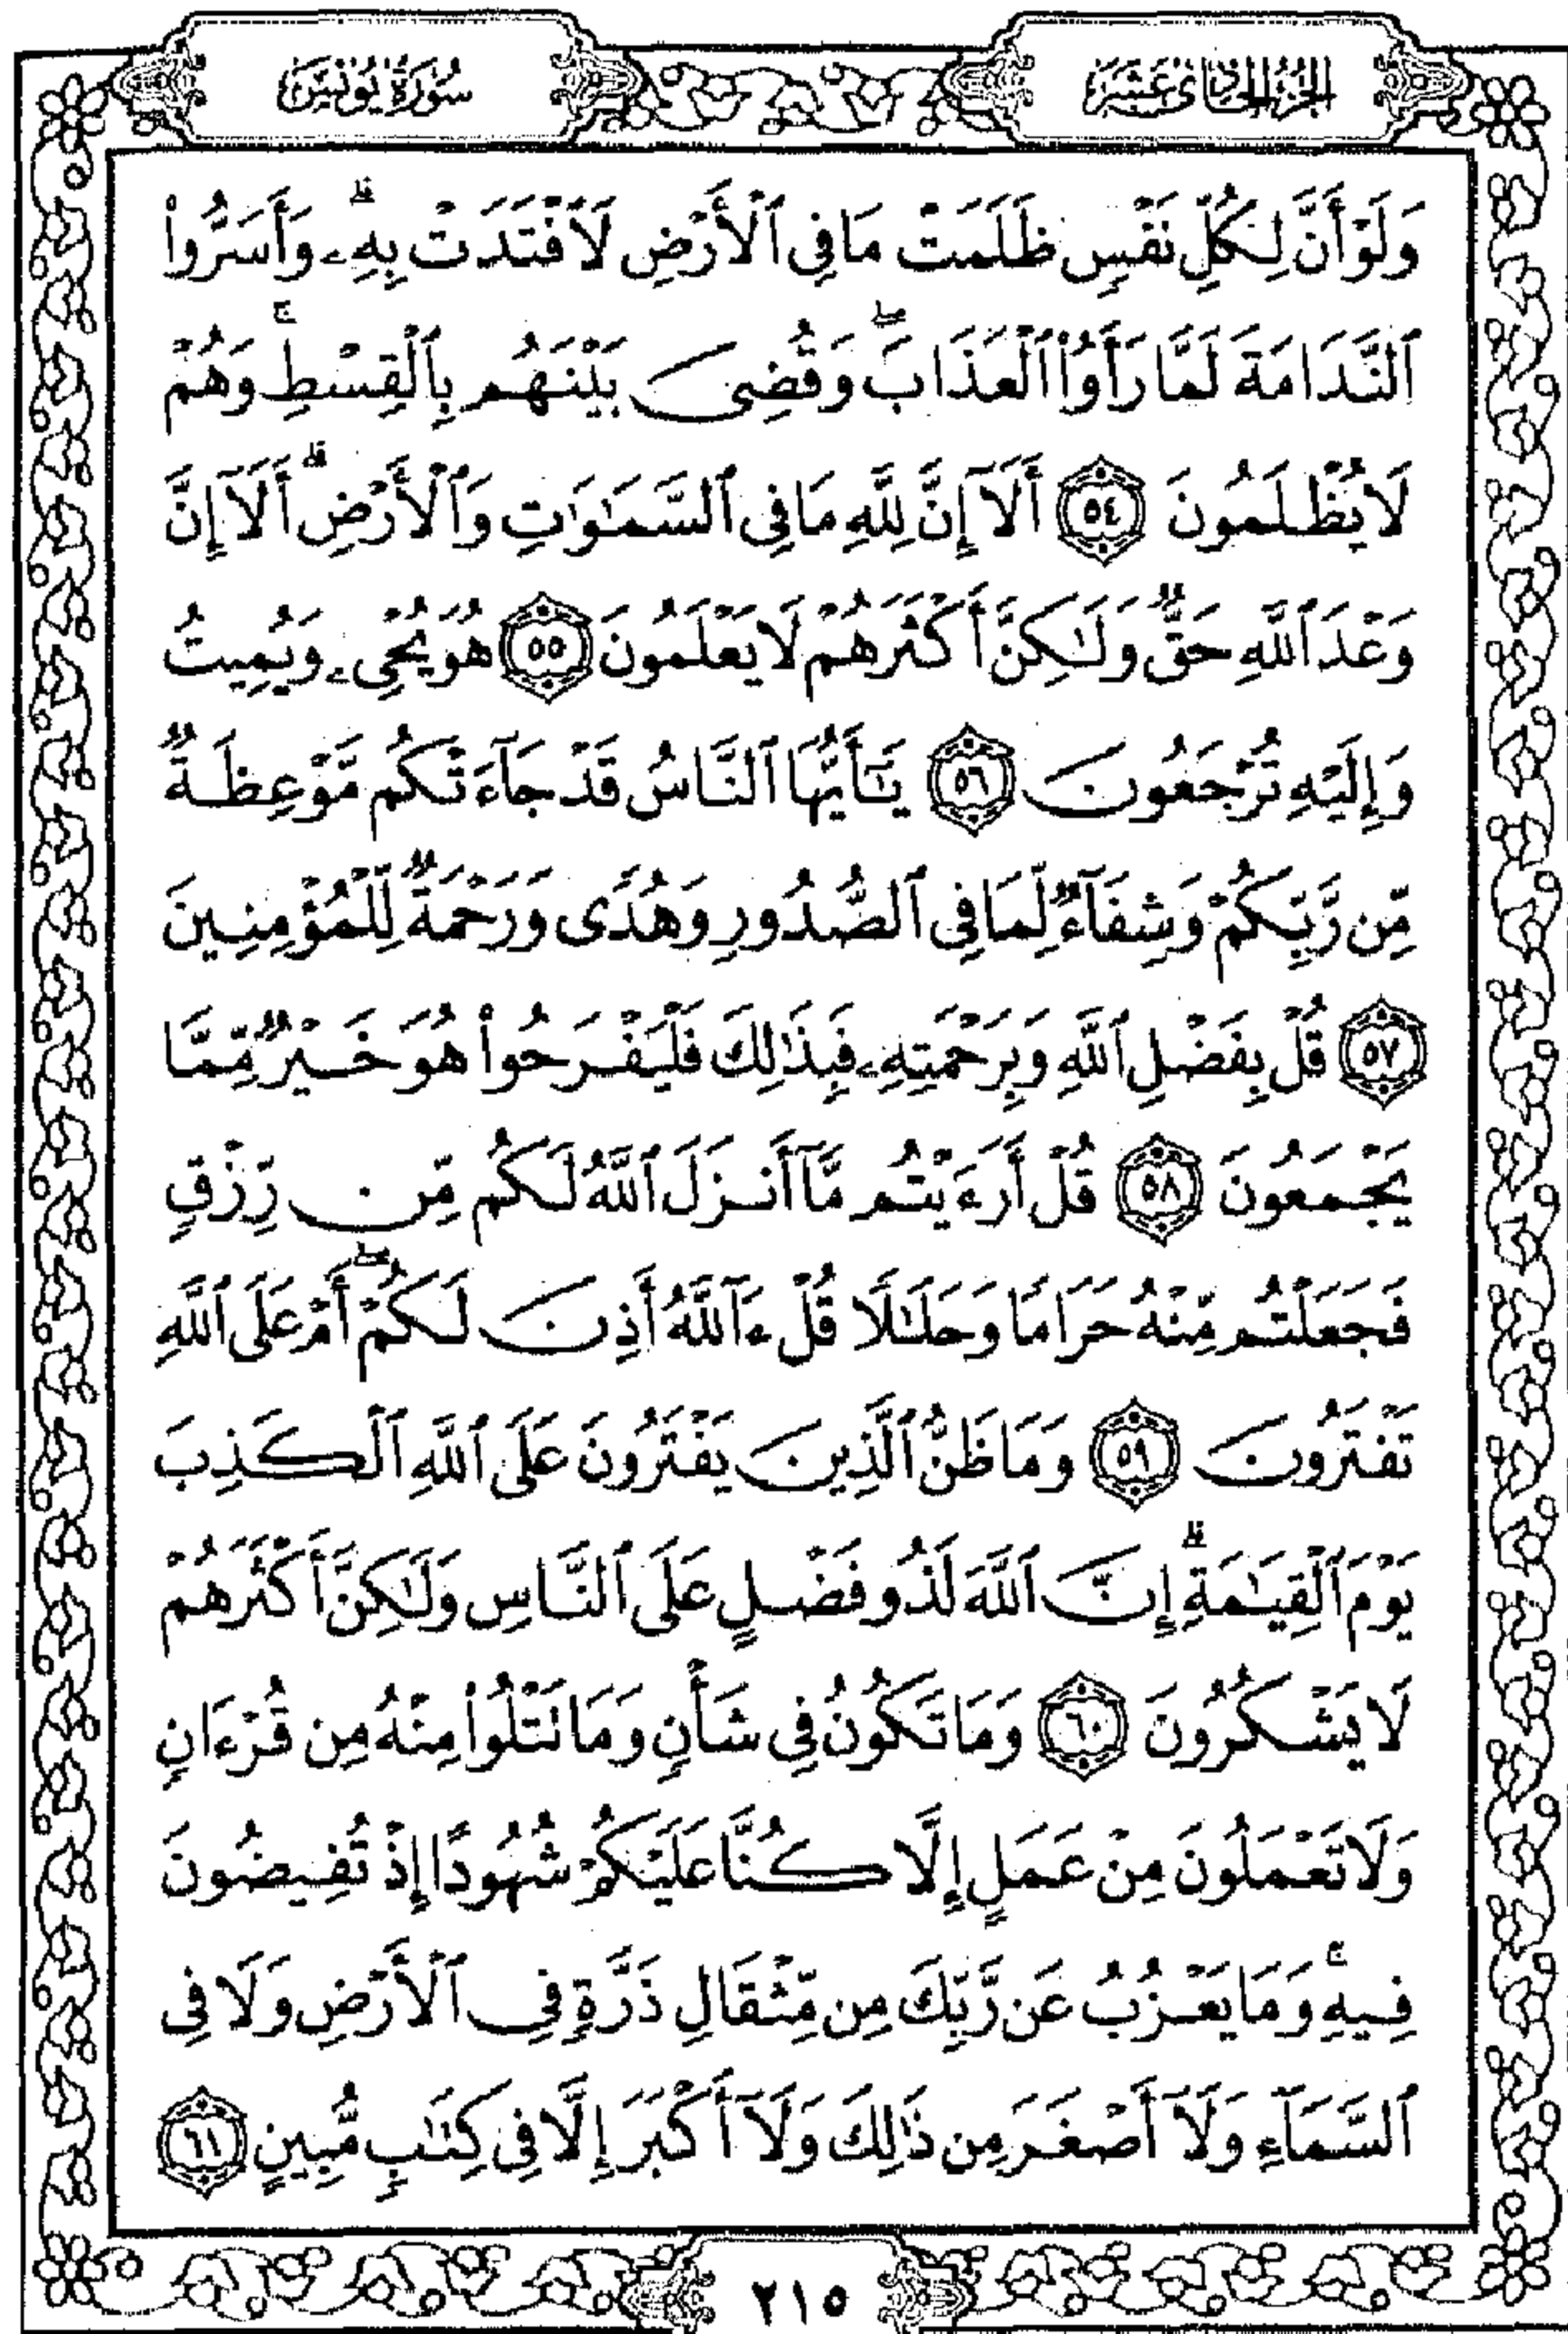 الجزء الحادي عشر
سورة يونس
وَلَوْ أَنَّ لِكُلِّ نَفْسٍ ظَلَمَتْ مَا فِى ٱلْأَرْضِ لَٱفْتَدَتْ بِهِۦ ۗ وَأَسَرُّوا۟
ٱلنَّدَامَةَ لَمَّا رَأَوُا۟ ٱلْعَذَابَ ۖ وَقُضِىَ بَيْنَهُم بِٱلْقِسْطِ ۚ وَهُمْ
لَا يُظْلَمُونَ ٥٤ أَلَآ إِنَّ لِلَّهِ مَا فِى ٱلسَّمَٰوَٰتِ وَٱلْأَرْضِ ۗ أَلَآ إِنَّ
وَعْدَ ٱللَّهِ حَقٌّ وَلَٰكِنَّ أَكْثَرَهُمْ لَا يَعْلَمُونَ ٥٥ هُوَ يُحْىِۦ وَيُمِيتُ
وَإِلَيْهِ تُرْجَعُونَ ٥٦ يَٰٓأَيُّهَا ٱلنَّاسُ قَدْ جَآءَتْكُم مَّوْعِظَةٌ
مِّن رَّبِّكُمْ وَشِفَآءٌ لِّمَا فِى ٱلصُّدُورِ وَهُدًى وَرَحْمَةٌ لِّلْمُؤْمِنِينَ
٥٧ قُلْ بِفَضْلِ ٱللَّهِ وَبِرَحْمَتِهِۦ فَبِذَٰلِكَ فَلْيَفْرَحُوا۟ هُوَ خَيْرٌ مِّمَّا
يَجْمَعُونَ ٥٨ قُلْ أَرَءَيْتُم مَّآ أَنزَلَ ٱللَّهُ لَكُم مِّن رِّزْقٍ
فَجَعَلْتُم مِّنْهُ حَرَامًا وَحَلَٰلًا قُلْ ءَآللَّهُ أَذِنَ لَكُمْ ۖ أَمْ عَلَى ٱللَّهِ
تَفْتَرُونَ ٥٩ وَمَا ظَنُّ ٱلَّذِينَ يَفْتَرُونَ عَلَى ٱللَّهِ ٱلْكَذِبَ
يَوْمَ ٱلْقِيَٰمَةِ ۗ إِنَّ ٱللَّهَ لَذُو فَضْلٍ عَلَى ٱلنَّاسِ وَلَٰكِنَّ أَكْثَرَهُمْ
لَا يَشْكُرُونَ ٦٠ وَمَا تَكُونُ فِى شَأْنٍ وَمَا تَتْلُوا۟ مِنْهُ مِن قُرْءَانٍ
وَلَا تَعْمَلُونَ مِنْ عَمَلٍ إِلَّا كُنَّا عَلَيْكُمْ شُهُودًا إِذْ تُفِيضُونَ
فِيهِ ۚ وَمَا يَعْزُبُ عَن رَّبِّكَ مِن مِّثْقَالِ ذَرَّةٍ فِى ٱلْأَرْضِ وَلَا فِى
ٱلسَّمَآءِ وَلَآ أَصْغَرَ مِن ذَٰلِكَ وَلَآ أَكْبَرَ إِلَّا فِى كِتَٰبٍ مُّبِينٍ ٦١
٢١٥